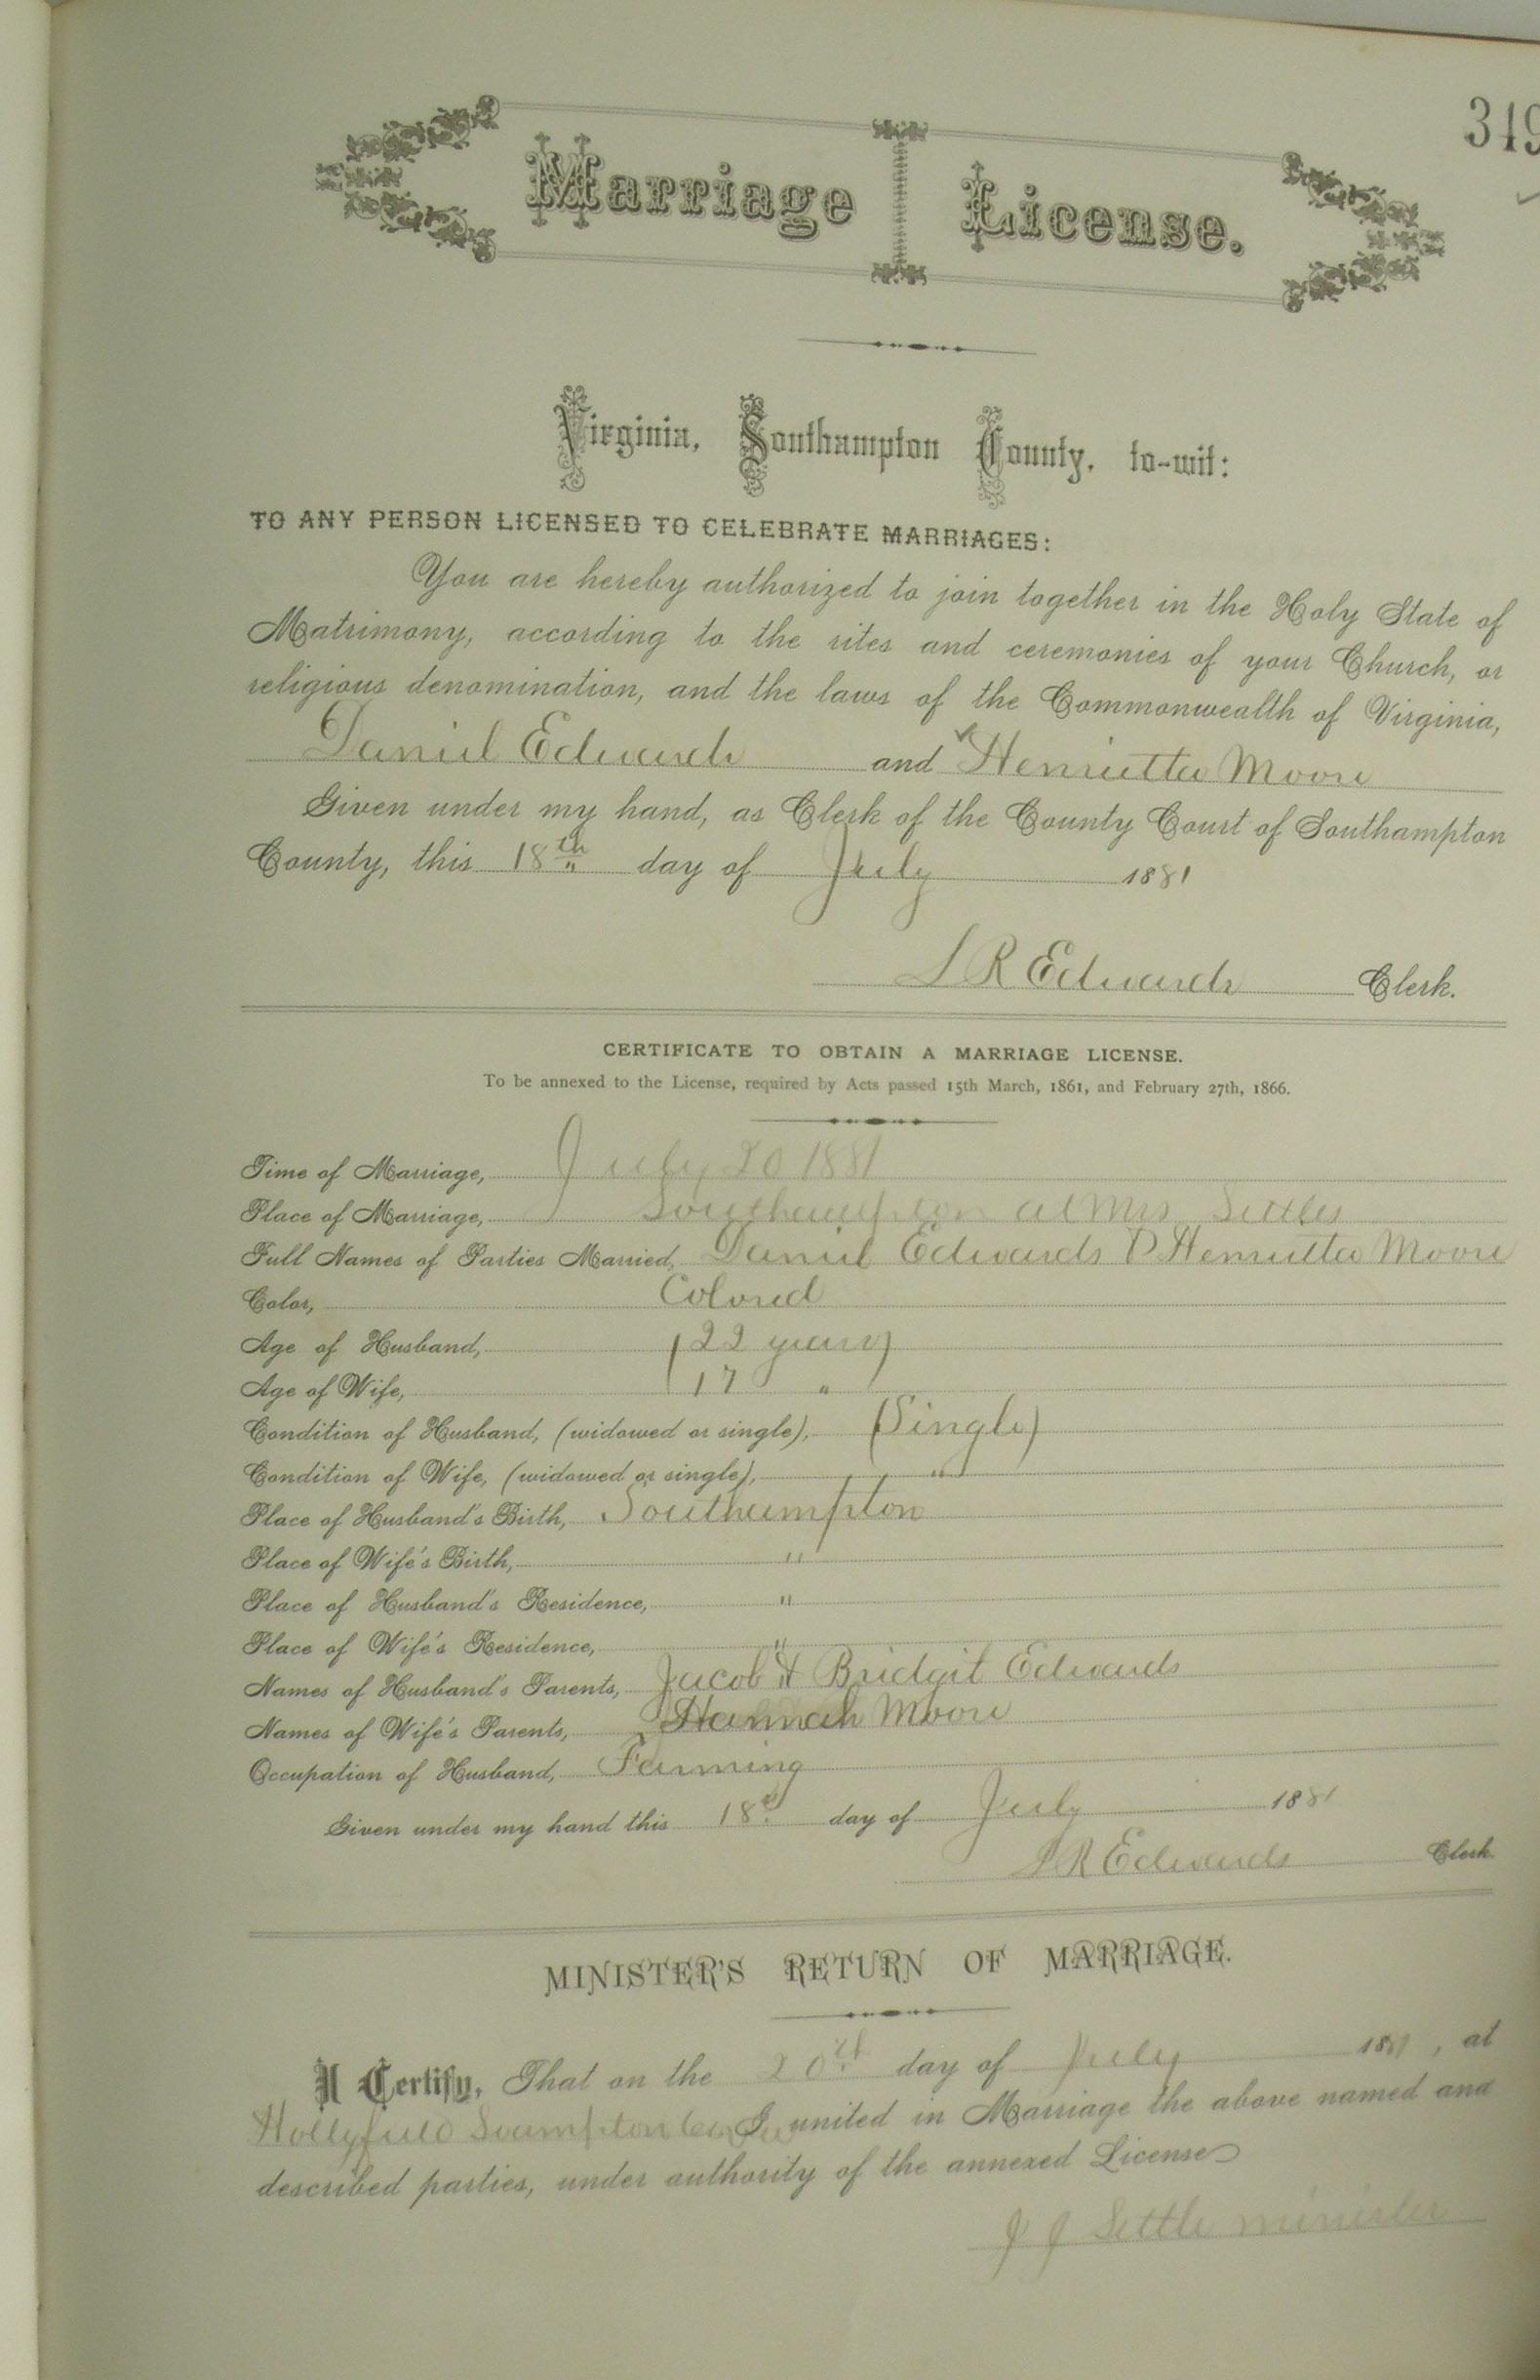 349
Marriage License.
Virginia, Southampton County, to-wit:
TO ANY PERSON LICENSED TO CELEBRATE MARRIAGES:
You are hereby authorized to join together in the Holy State of
Matrimony, according to the rites and ceremonies of your Church, or
religious denomination, and the laws of the Commonwealth of Virginia,
Daniel Edwards and Henrietta Moore
Given under my hand, as Clerk of the County Court of Southampton
County, this 18th day of July 1881
L R Edwards Clerk.
CERTIFICATE TO OBTAIN A MARRIAGE LICENSE.
To be annexed to the License, required by Acts passed 15th March, 1861, and February 27th, 1866.
Time of Marriage, July 20 1881
Place of Marriage, Southampton at Mrs Settles
Full Names of Parties Married, Daniel Edwards & Henrietta Moore
Color, Colored
Age of Husband, (22 years)
Age of Wife, (17 "
Condition of Husband, (widowed or single), (Single)
Condition of Wife, (widowed or single), "
Place of Husband's Birth, Southampton
Place of Wife's Birth, "
Place of Husband's Residence, "
Place of Wife's Residence, "
Names of Husband's Parents, Jacob & Bridgit Edwards
Names of Wife's Parents, Hannah Moore
Occupation of Husband, Farming
Given under my hand this 18th day of July 1881
L R Edwards Clerk
MINISTER'S RETURN OF MARRIAGE.
I Certify, That on the 20th day of July 1881, at
Hollyfield I united in Marriage the above named and
described parties, under authority of the annexed License
J J Settle minister